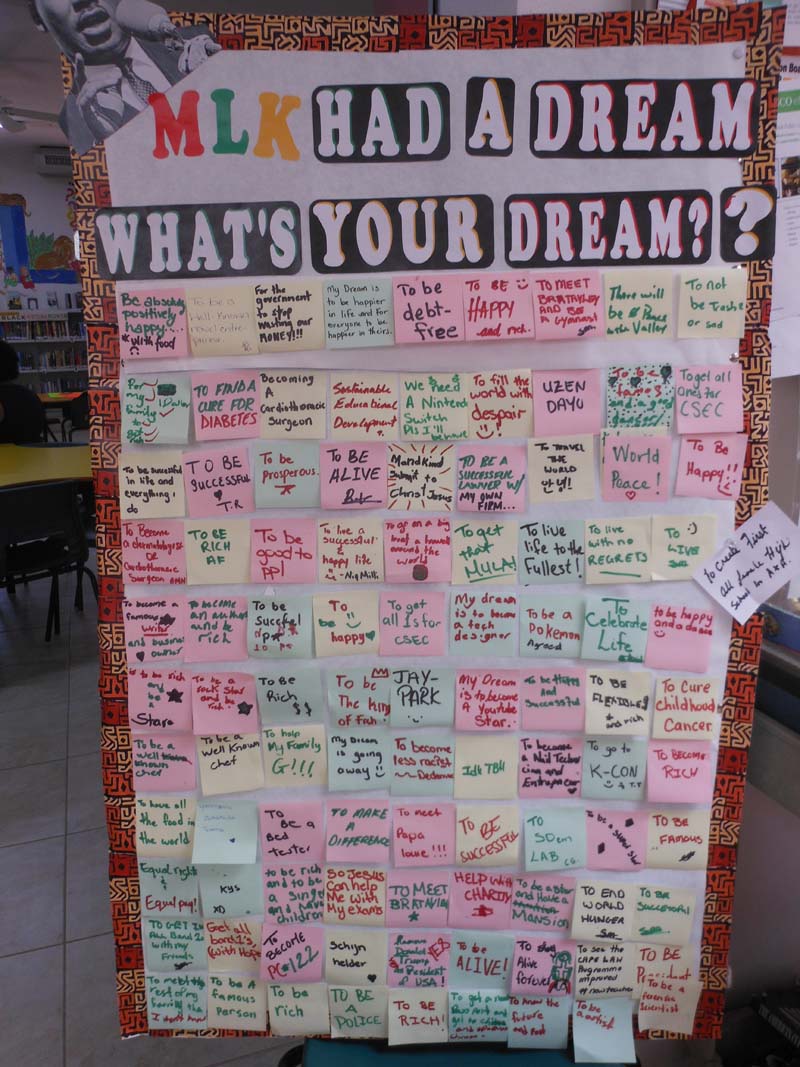 MLK HAD A DREAM
WHAT'S YOUR DREAM? ?
Be absolutely
positively
happy...
*with food
To be a
Well-Known
novel entre-
preneur.
For the
government
to stop
wasting our
MONEY!!!
My Dream is
to be happier
in life and For
everyone to be
happier in theirs.
To be
debt-
free
TO BE
HAPPY
and rich.
TO MEET
BRATAYLEY
AND BE
A GYMNAST
There will
be Peace
with Valley
To not
be Trashe
or sad
For
my
family to
TO FIND A
CURE FOR
DIABETES
Becoming
A
Cardiothoracic
Surgeon
Sustainable
Educational
Development
We Need
A Nintendo
Switch
Pls I'll behave
To fill the
world with
despair
UZEN
DAYO
To be
To get all
Ones for
CSEC
To be successful
in life and
everything i
do
TO BE
SUCCESSFUL
T.R
To be
prosperous.
TO BE
ALIVE
Mankind
Submit to
Christ Jesus
TO BE A
SUCCESSFUL
LAWYER W/
MY OWN
FIRM...
TO TRAVEL
THE
WORLD
안녕!!
World
Peace!
To Be
Happy!!
To Become
a dermatologist
OR
Cardiothoracic
Surgeon
TO BE
RICH
AF
To be
good to
PPl
To live a
successful
&
happy life
To go on a big
boat & travel
around the
world
To get
that
MULA!
To live
life to the
Fullest!
To live
with no
REGRETS
To
LIVE
To Create First
all female High
School in
To become a
famous
Writer
and business
owner
To become
an author
and be
rich
To be
Succful
To
be
happy
To get
all 1s for
CSEC
My dream
is to become
a tech
designer
To be a
Pokemon
Agreed
To
Celebrate
Life
to be happy
and a dance
is to be rich
and
be a
Star
To be a
rock Star
and be
rich
To BE
Rich
$$
To be
The King
of Fish!
JAY-
PARK
My Dream
is to become
a Youtube
Star.
To be Happy
And
Successful
TO BE
FLEXIBLE
and rich
To Cure
childhood
Cancer
To be a
Well
Known
chef
To be a
Well Known
Chef
To help
My Family
G!!!
My Dream
is going
away
To become
less racist
Idk TBH
To become
a Nail Technician
and
Entrepreneur
To go to
K-CON
TO BECOME
RICH
To have all
the food in
the world
To
Be a
Bed
tester
TO MAKE
A
DIFFERENCE
To meet
Papa
lowe !!!
TO BE
SUCCESSFUL
TO
SDem
LAB co.
To be a
Star
To
Be
FAMOUS
Equal rights
&
Equal pay!
KYS
XD
to be rich
and to be
a singer
and have
children
So Jesus
Can help
Me with
My exams
TO MEET
BRATAYLEY
HELP With
CHARITY
To be a star
and Have a
MANSION
TO END
WORLD
HUNGER
To BE
SUCCESSFUL
To GET IN
with my
Friends
Get all
band 1's
(with Hope)
To
BECOME
PC#122
Schijn
helder
Remove
Donald
Trump
as President
of USA!
YES
To be
ALIVE!
To stay
Alive
forever
To see the
CAPE LAW
Programme
improved
TO BE
President
To meet the
rest of my
family tha
I don't know
To be A
famous
Person
To be
rich
TO BE
A
POLICE
To BE
RICH!
To get a new
Pass port and
To know the
future
and Past
To be
a artist
To be a
forensic
Scientist